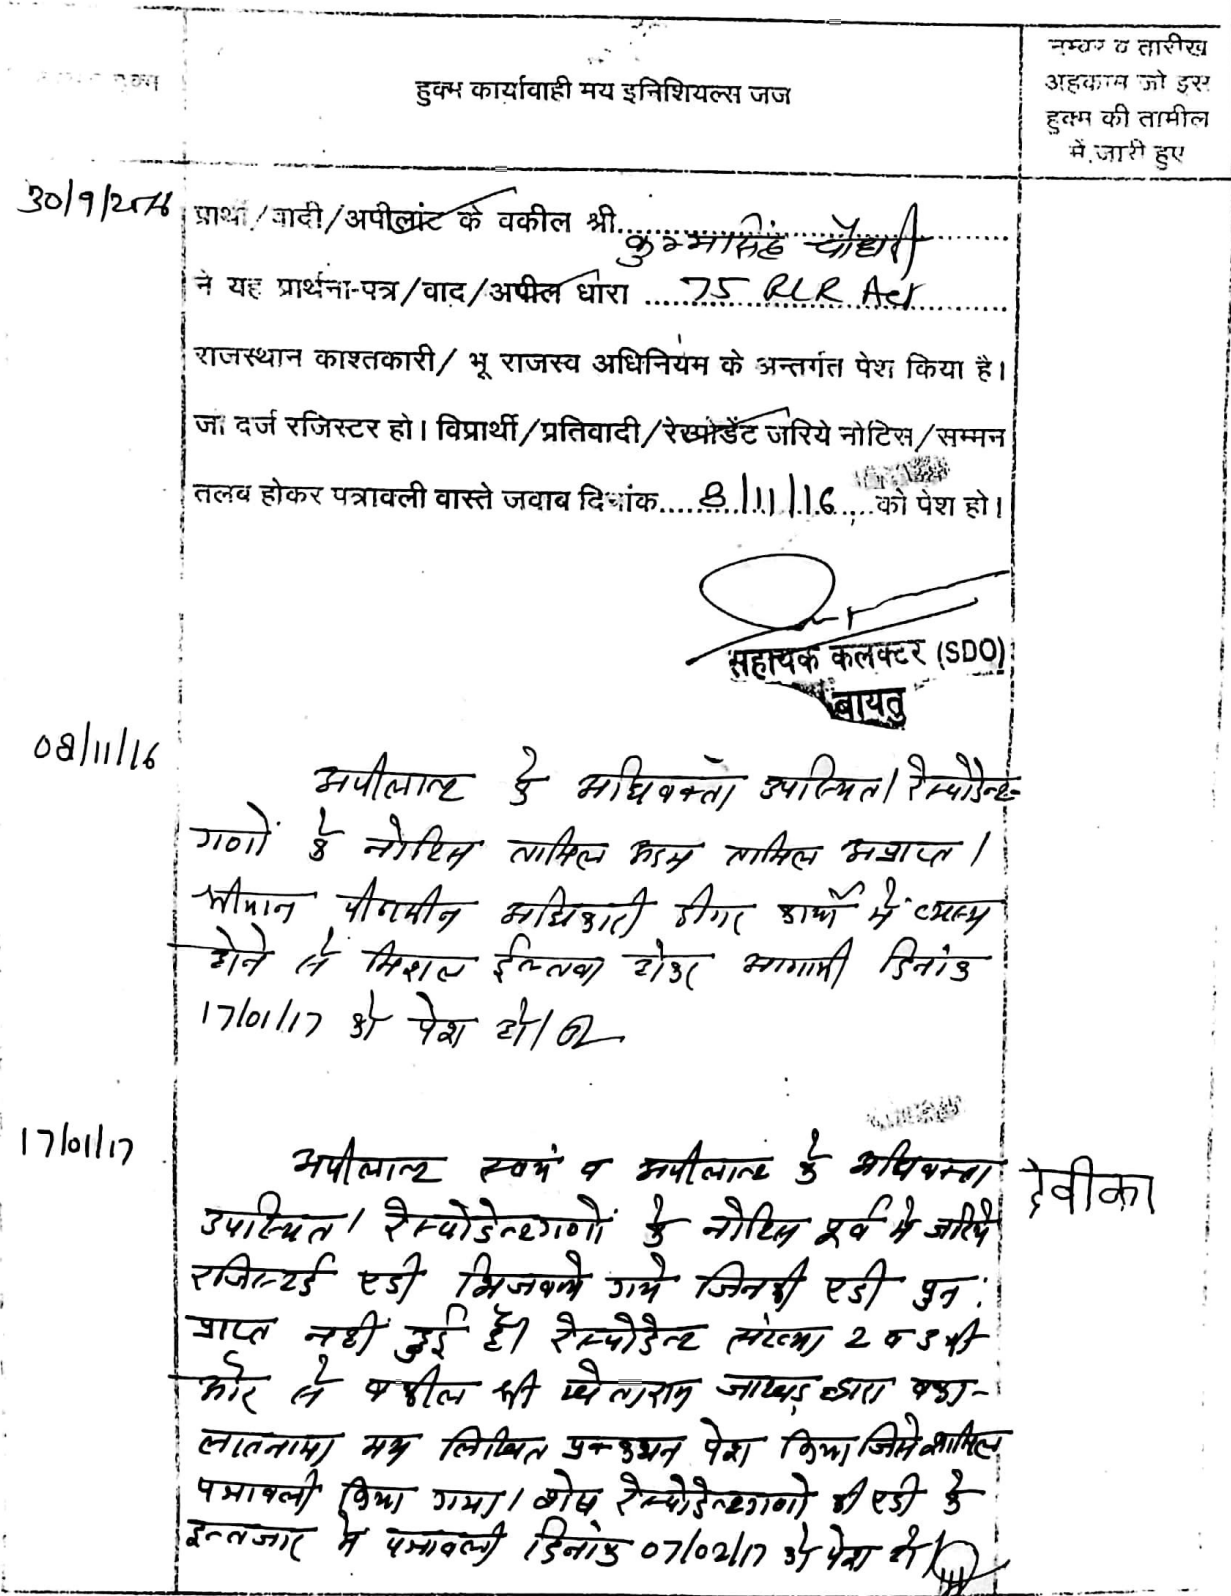 हुक्म कार्यावाही मय इनिशियल्स जज
नम्बर व तारीख
अहकाम जो इस
हुक्म की तामील
में जारी हुए
30/9/2016
प्रार्थी/वादी/अपीलांट के वकील श्री.......... कुम्भासिंह चौधरी
ने यह प्रार्थना-पत्र/वाद/अपील धारा ....75 RLR Act....
राजस्थान काश्तकारी/ भू राजस्व अधिनियम के अन्तर्गत पेश किया है।
जो दर्ज रजिस्टर हो। विप्रार्थी/प्रतिवादी/रेस्पोडेंट जरिये नोटिस/सम्मन
तलब होकर पत्रावली वास्ते जवाब दिनांक....8/11/16....को पेश हो।
सहायक कलक्टर (SDO)
बायतु
08/11/16
अपीलान्ट के अधिवक्ता उपस्थित। रेस्पोडेन्ट-
गणों के नोटिस तामिल अदम तामिल अप्राप्त।
श्रीमान पीठासीन अधिकारी दीगर कार्य में व्यस्त
होने से मिशल ईल्तवा होकर आगामी दिनांक
17/01/17 को पेश हो।
17/01/17
अपीलान्ट स्वयं व अपीलान्ट के अधिवक्ता
देवीका
उपस्थित। रेस्पोडेन्टगणों के नोटिस पूर्व में जरिये
रजिस्टर्ड एडी भिजवाये गये जिनकी एडी पुन:
प्राप्त नहीं हुई है। रेस्पोडेन्ट संख्या 2 व 3 की
ओर से वकील श्री खेताराम जाखड़ द्वारा वका-
लातनामा मय लिखित प्रकथन पेश किया जिसे शामिल
पत्रावली किया गया। शेष रेस्पोडेन्टगणों की एडी के
इन्तजार में पत्रावली दिनांक 07/02/17 को पेश हो।